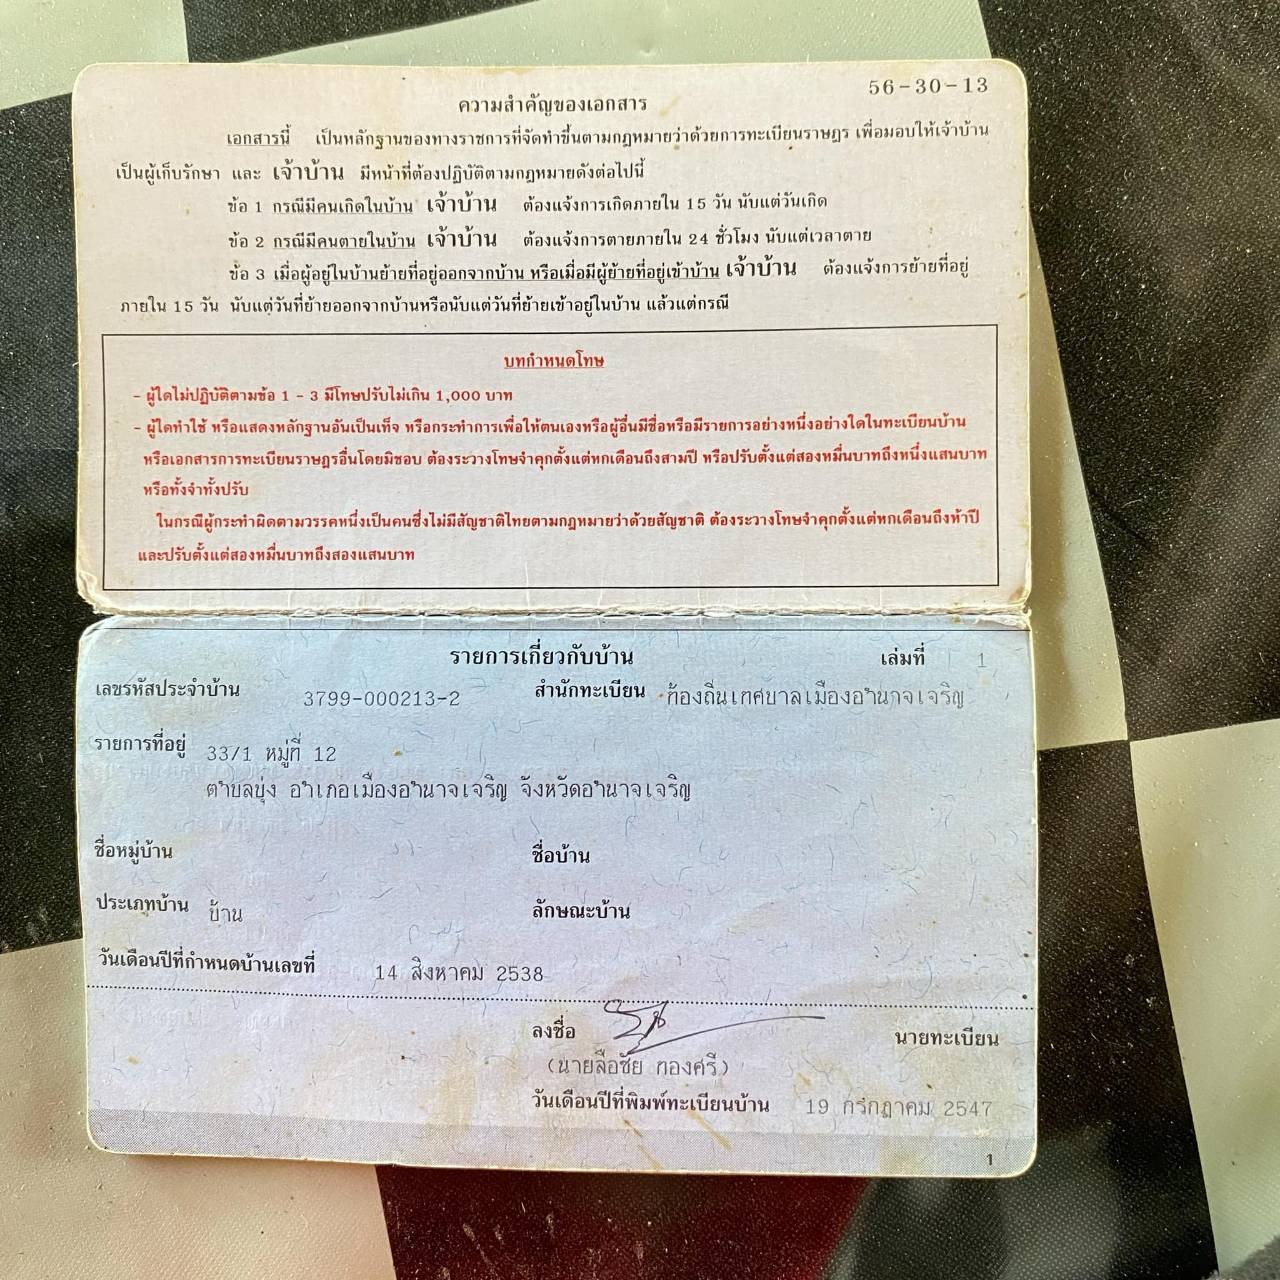 56-30-13
ความสำคัญของเอกสาร
เอกสารนี้ เป็นหลักฐานของทางราชการที่จัดทำขึ้นตามกฎหมายว่าด้วยการทะเบียนราษฎร เพื่อมอบให้เจ้าบ้าน
เป็นผู้เก็บรักษา และ เจ้าบ้าน มีหน้าที่ต้องปฏิบัติตามกฎหมายดังต่อไปนี้
ข้อ 1 กรณีมีคนเกิดในบ้าน เจ้าบ้าน ต้องแจ้งการเกิดภายใน 15 วัน นับแต่วันเกิด
ข้อ 2 กรณีมีคนตายในบ้าน เจ้าบ้าน ต้องแจ้งการตายภายใน 24 ชั่วโมง นับแต่เวลาตาย
ข้อ 3 เมื่อผู้อยู่ในบ้านย้ายที่อยู่ออกจากบ้าน หรือเมื่อมีผู้ย้ายที่อยู่เข้าบ้าน เจ้าบ้าน ต้องแจ้งการย้ายที่อยู่
ภายใน 15 วัน นับแต่วันที่ย้ายออกจากบ้านหรือนับแต่วันที่ย้ายเข้าอยู่ในบ้าน แล้วแต่กรณี
บทกำหนดโทษ
- ผู้ใดไม่ปฏิบัติตามข้อ 1 - 3 มีโทษปรับไม่เกิน 1,000 บาท
- ผู้ใดทำใช้ หรือแสดงหลักฐานอันเป็นเท็จ หรือกระทำการเพื่อให้ตนเองหรือผู้อื่นมีชื่อหรือมีรายการอย่างหนึ่งอย่างใดในทะเบียนบ้าน
หรือเอกสารการทะเบียนราษฎรอื่นโดยมิชอบ ต้องระวางโทษจำคุกตั้งแต่หกเดือนถึงสามปี หรือปรับตั้งแต่สองหมื่นบาทถึงหนึ่งแสนบาท
หรือทั้งจำทั้งปรับ
ในกรณีผู้กระทำผิดตามวรรคหนึ่งเป็นคนซึ่งไม่มีสัญชาติไทยตามกฎหมายว่าด้วยสัญชาติ ต้องระวางโทษจำคุกตั้งแต่หกเดือนถึงห้าปี
และปรับตั้งแต่สองหมื่นบาทถึงสองแสนบาท
รายการเกี่ยวกับบ้าน เล่มที่ 1
เลขรหัสประจำบ้าน 3799-000213-2 สำนักทะเบียน ท้องถิ่นเทศบาลเมืองอำนาจเจริญ
รายการที่อยู่ 33/1 หมู่ที่ 12
ตำบลบุ่ง อำเภอเมืองอำนาจเจริญ จังหวัดอำนาจเจริญ
ชื่อหมู่บ้าน ชื่อบ้าน
ประเภทบ้าน บ้าน ลักษณะบ้าน
วันเดือนปีที่กำหนดบ้านเลขที่ 14 สิงหาคม 2538
ลงชื่อ นายทะเบียน
(นายลือชัย ทองศรี)
วันเดือนปีที่พิมพ์ทะเบียนบ้าน 19 กรกฎาคม 2547
1